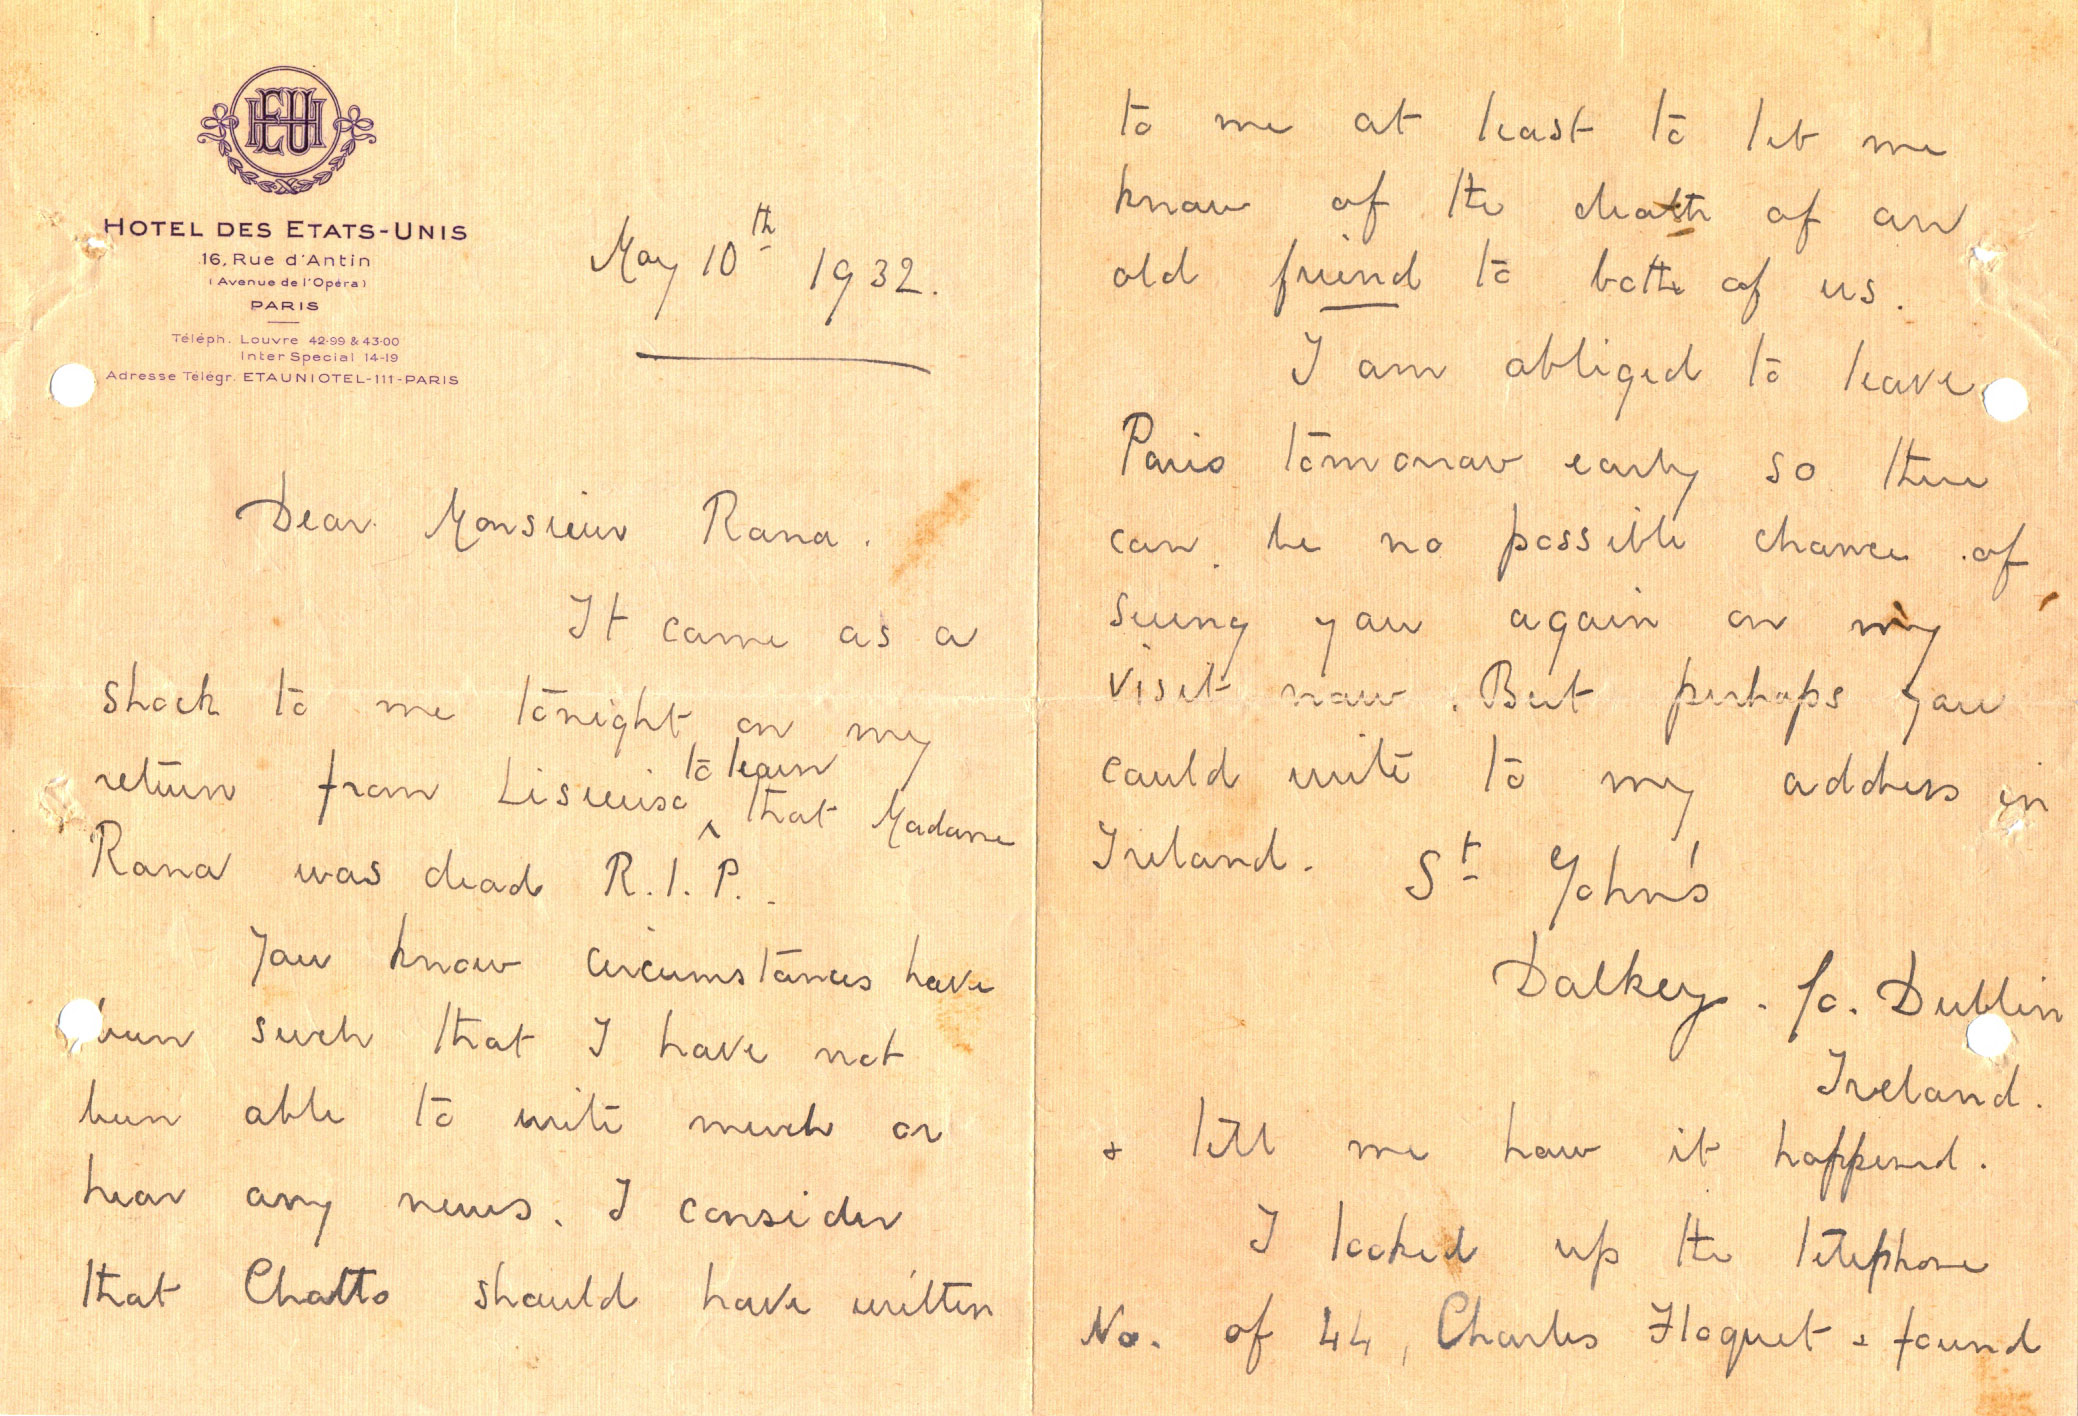 HEU
HOTEL DES ETATS-UNIS
16, Rue d'Antin
(Avenue de l'Opéra)
PARIS
Téléph. Louvre 42-99 & 43-00
Inter Special 14-19
Adresse Télégr. ETAUNIOTEL-111-PARIS
May 10th 1932.
Dear Monsieur Rana.
It came as a
shock to me tonight on my
return from Lisieux to learn that Madame
Rana was dead R.I.P.
You know circumstances have
been such that I have not
been able to write much or
hear any news. I consider
that Chatto should have written
to me at least to let me
know of the death of an
old friend to both of us.
I am obliged to leave
Paris tomorrow early so there
can be no possible chance of
seeing you again on my
visit now. But perhaps you
could write to my address in
Ireland. St John's
Dalkey. Co. Dublin
Ireland.
& tell me how it happened.
I looked up the telephone
No. of 44, Charles Floquet & found